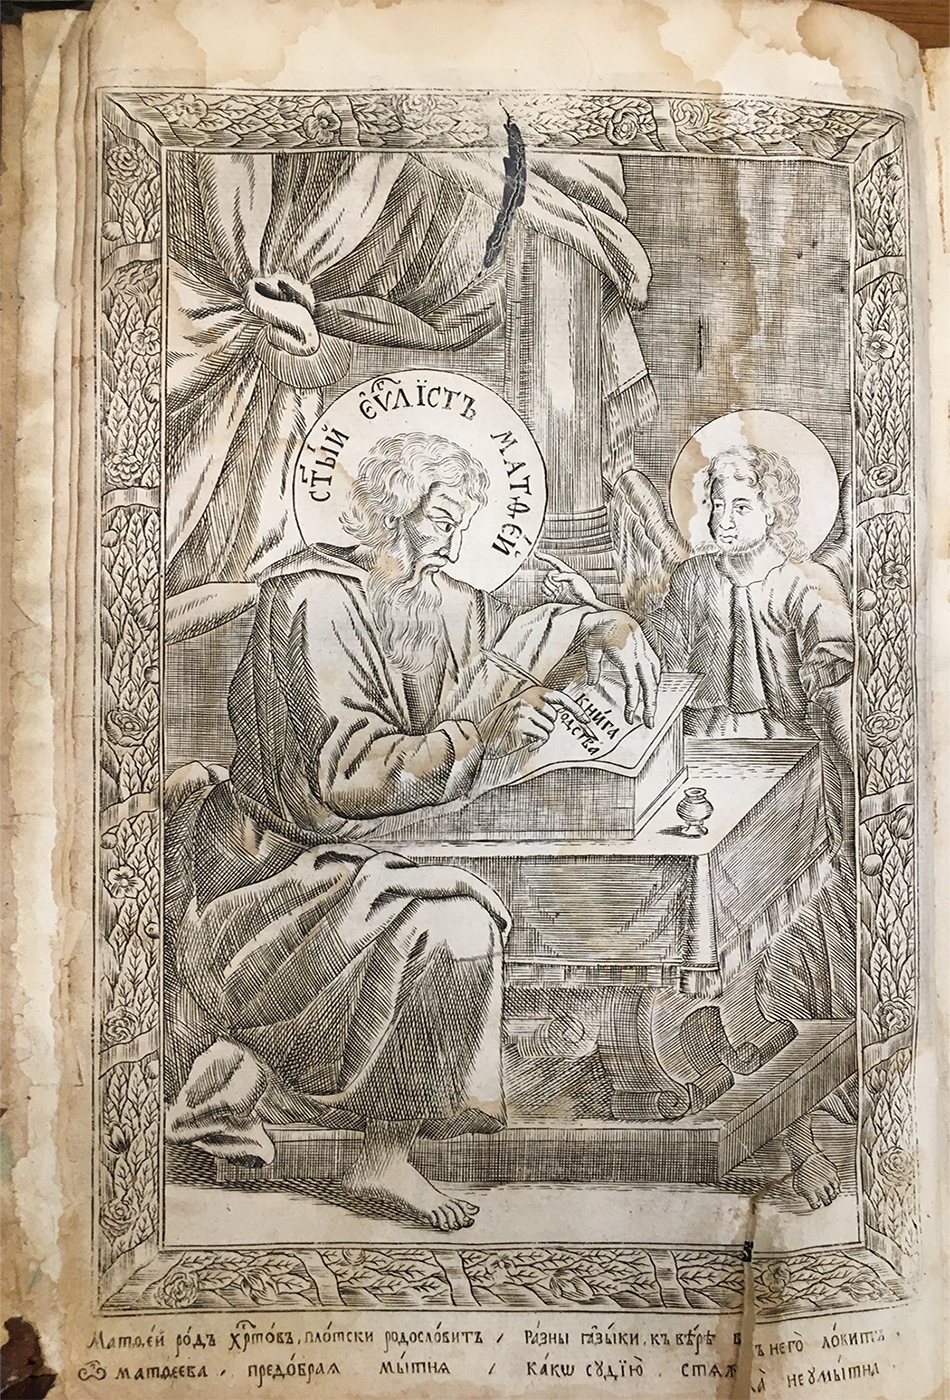 СТ҃ЫЙ ЄѴ҃ЛЇСТЪ МАТѲЕЙ
КНИГА
РОДСТВА
Матѳей ро́дъ Хр҃то́въ, пло́тски родосло́витъ / Ра́зны ꙗзы́ки, къ вѣ́рѣ него̀ ло́витъ .
Ѿ матѳеева , предо́браѧ мы́тнѧ / Ка́кѡ сꙋдїю̀ неꙋмы́тна